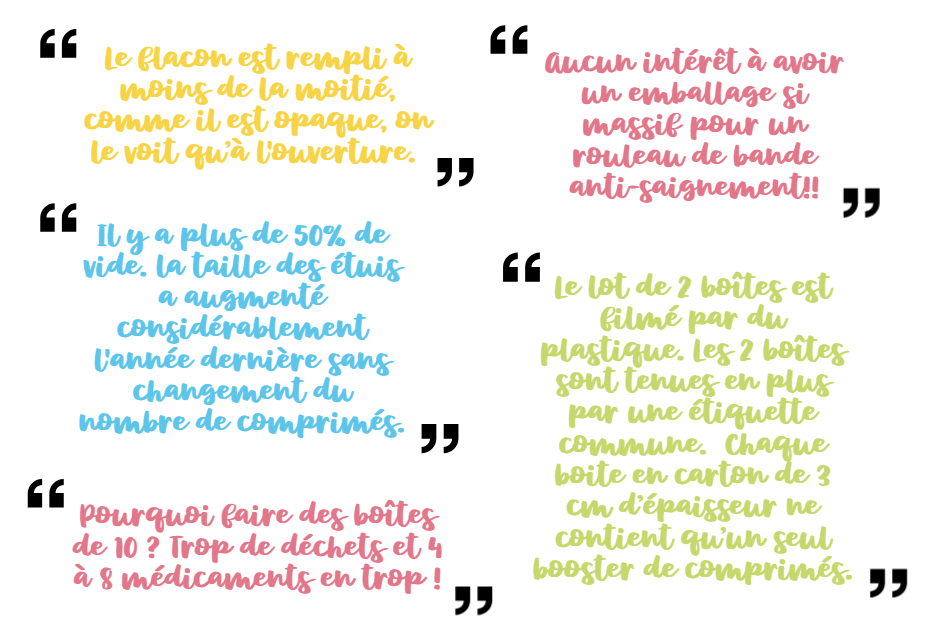 Le flacon est rempli à
moins de la moitié,
comme il est opaque, on
le voit qu'à l'ouverture.
Il y a plus de 50% de
vide. La taille des étuis
a augmenté
considérablement
l'année dernière sans
changement du
nombre de comprimés.
Pourquoi faire des boîtes
de 10 ? Trop de déchets et 4
à 8 médicaments en trop !
Aucun intérêt à avoir
un emballage si
massif pour un
rouleau de bande
anti-saignement!!
Le lot de 2 boîtes est
filmé par du
plastique. Les 2 boîtes
sont tenues en plus
par une étiquette
commune. Chaque
boite en carton de 3
cm d'épaisseur ne
contient qu'un seul
booster de comprimés.